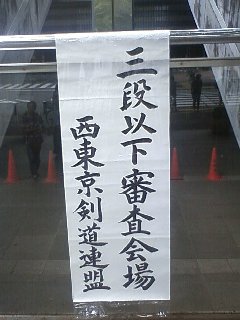 三段以下審査会場
西東京剣道連盟